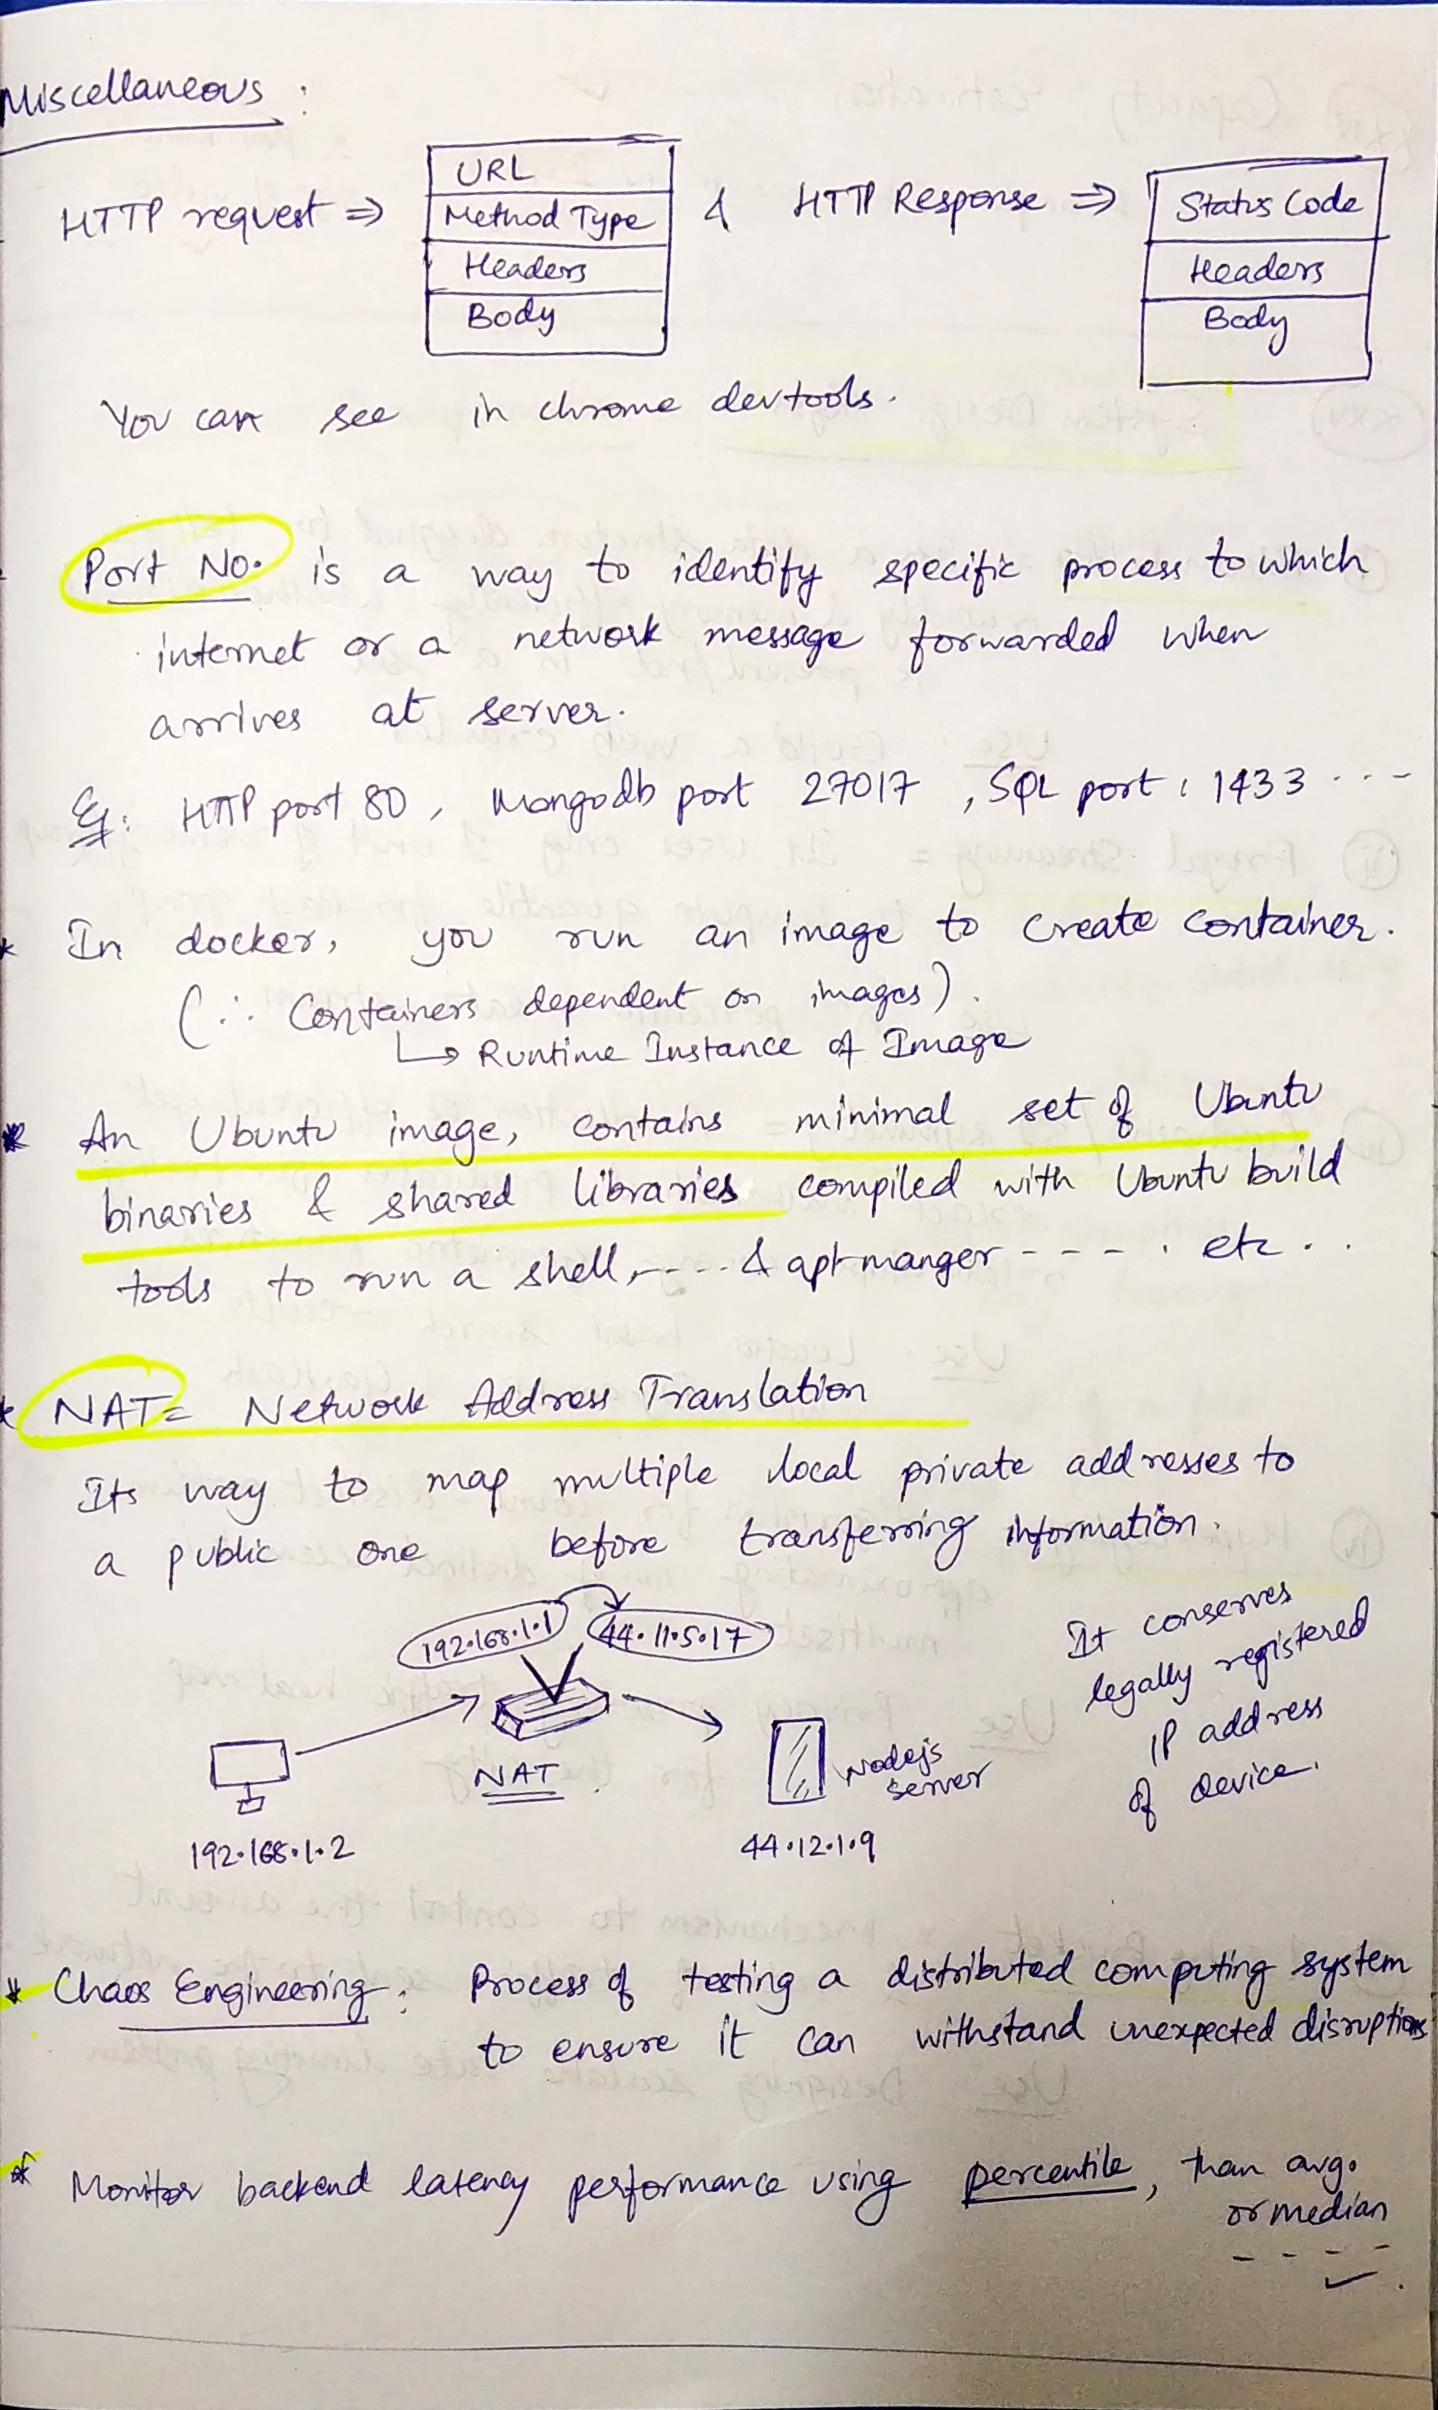 Miscellaneous :
HTTP request ⇒
URL
Method Type
Headers
Body
& HTTP Response ⇒
Status Code
Headers
Body
You can see in chrome devtools.
Port No. is a way to identify specific process to which
internet or a network message forwarded when
arrives at server.
Eg: HTTP port 80, Mongodb port 27017, SQL port : 1433 ...
* In docker, you run an image to create container.
(∵ Containers dependent on images).
↳ Runtime Instance of Image
* An Ubuntu image, contains minimal set of Ubuntu
binaries & shared libraries compiled with Ubuntu build
tools to run a shell, ---- & apt manger ---- . etc ..
* NAT = Network Address Translation
Its way to map multiple local private addresses to
a public one before transferring information.
192.168.1.1 44.11.5.17
NAT
Nodejs
server
192.168.1.2
44.12.1.9
It conserves
legally registered
IP address
of device.
* Chaos Engineering : Process of testing a distributed computing system
to ensure it can withstand unexpected disruptions
* Monitor backend latency performance using percentile, than avg.
or median
----